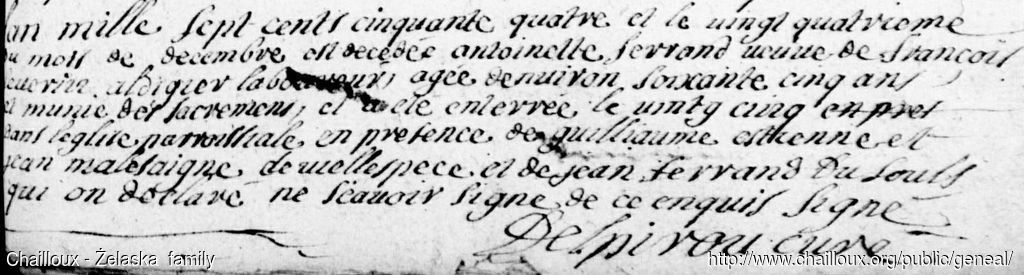 lan mille sept cents cinquante quatre et le vingt quatrieme
du mois de decembre est decedée antoinette ferrand veuve de françois
aldigier laboureur, agée denviron soixante cinq ans
et munie des sacremens, et a ete enterrée le vintg cinq
dans leglise parroissiale en presence de guilliaume estienne et
jean malesaigne de viellespece et de jean ferrand Du Souls
qui on declaré ne scavoir signe de ce enquis signé
Delpirou curé
Chailloux - Żelaska family
http://www.chailloux.org/public/geneal/